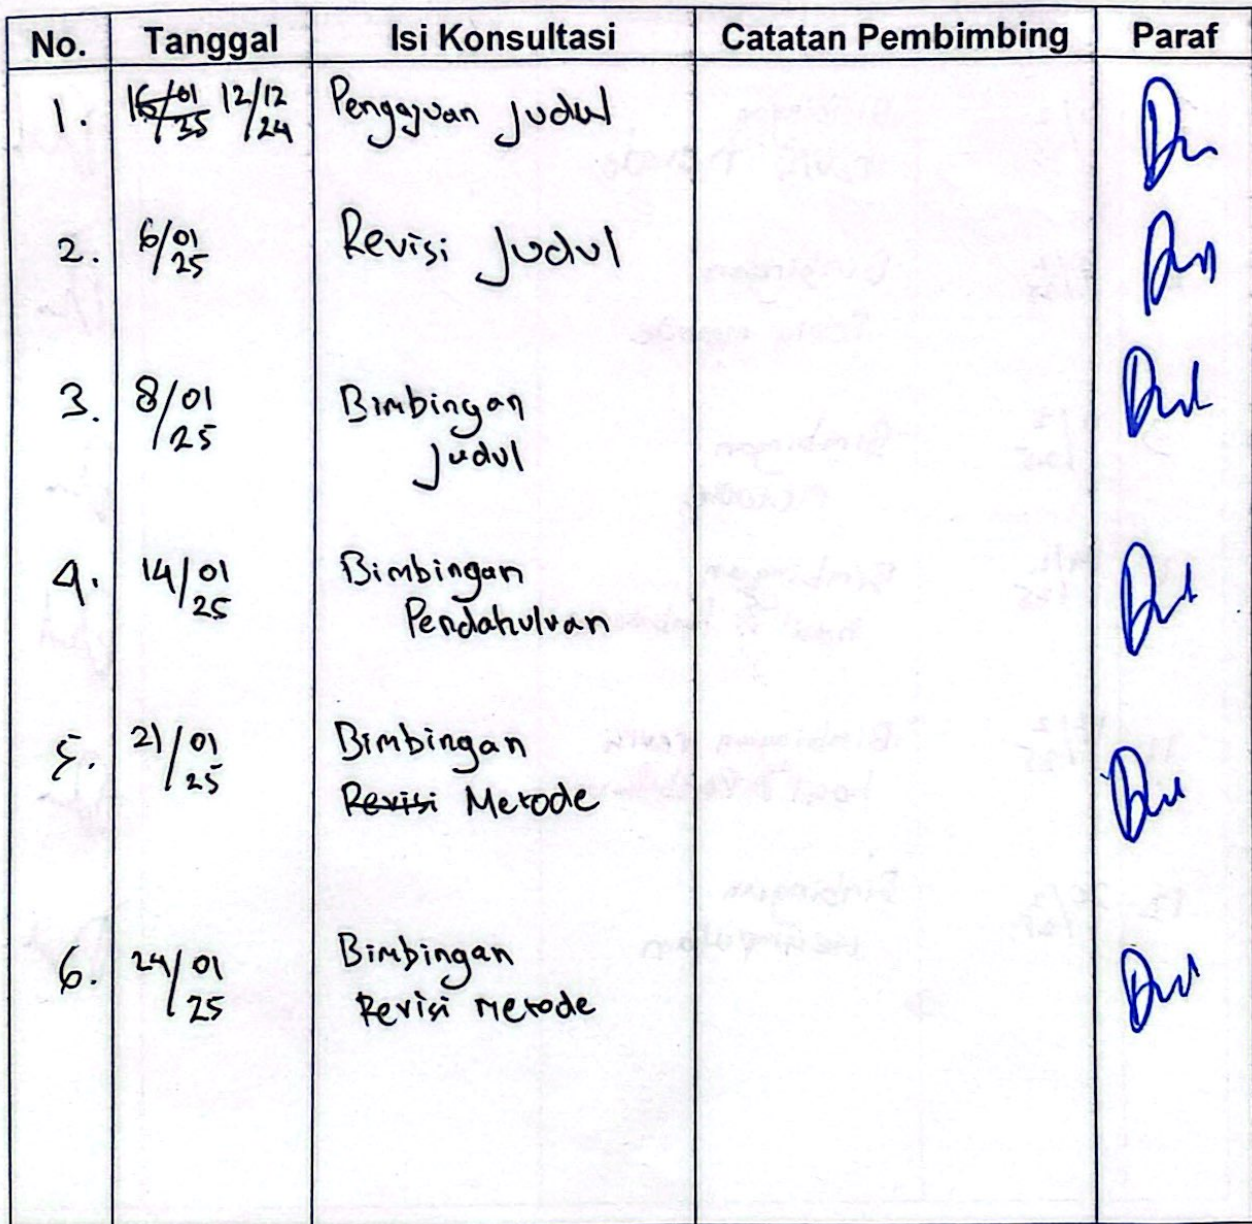 No. Tanggal Isi Konsultasi Catatan Pembimbing Paraf
1. 12/12/24 Pengajuan Judul
2. 6/01/25 Revisi Judul
3. 8/01/25 Bimbingan
Judul
4. 14/01/25 Bimbingan
Pendahuluan
5. 21/01/25 Bimbingan
Revisi Metode
6. 24/01/25 Bimbingan
Revisi Metode